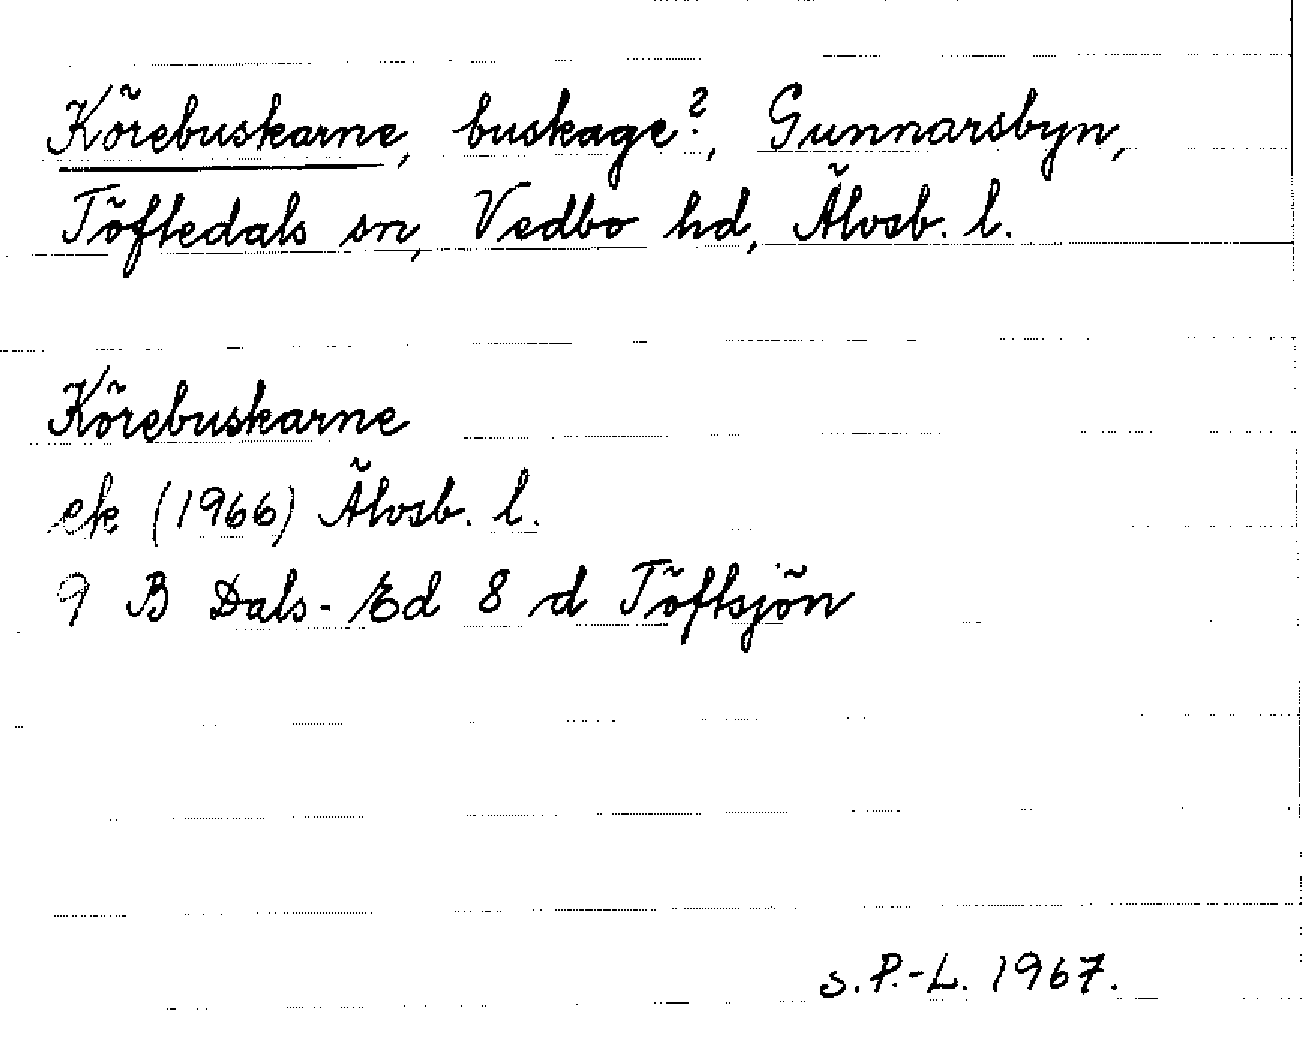 Körebuskarne, buskage?, Gunnarsbyn,
Töftedals sn, Vedbo hd, Älvsb. l.
Körebuskarne
ek (1966) Älvsb. l.
9 B Dals-Ed 8 d Töftsjön
S.P.-L. 1967.